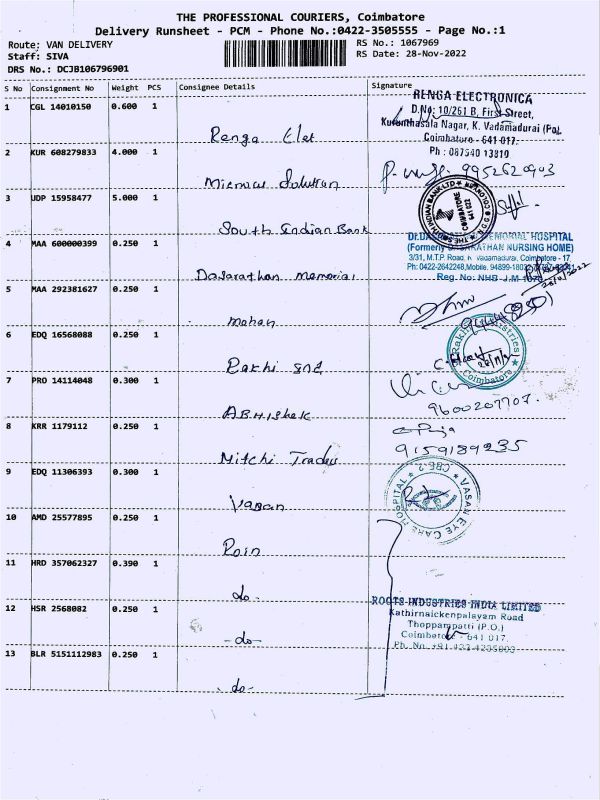 THE PROFESSIONAL COURIERS, Coimbatore
Delivery Runsheet - PCM - Phone No.:0422-3505555 - Page No.:1
Route: VAN DELIVERY
RS No.: 1067969
Staff: SIVA
RS Date: 28-Nov-2022
DRS No.: DCJB106796901
S No Consignment No Weight PCS Consignee Details Signature
1 CGL 14010150 0.600 1
Renga Elet
RENGA ELECTRONICA
D.No: 10/261 B, First Street,
Kurunthasala Nagar, K. Vadamadurai (Po),
Coimbatore - 641 017.
Ph : 087540 13810
2 KUR 608279833 4.000 1
9952620903
3 UDP 15958477 5.000 1
South Indian Bank
THE SOUTH INDIAN BANK LTD
COIMBATORE
641 022
4 MAA 600000399 0.250 1
Dasarathan memorial
MEMORIAL HOSPITAL
(Formerly DASARATHAN NURSING HOME)
3/31, M.T.P. Road, K. Vadamadurai, Coimbatore - 17.
Ph: 0422-2642248, Mobile.
Reg. No: NHB
5 MAA 292381627 0.250 1
mohan
6 EDQ 16568088 0.250 1
Rakhi Ind
Rakhi Industries
Coimbatore
7 PRO 14114048 0.300 1
ABHIshek
9600207707.
8 KRR 1179112 0.250 1
Mitchi Trades
Puja
9159189235
9 EDQ 11306393 0.300 1
Vasan
VASAN EYE CARE HOSPITAL
CBE-2
10 AMD 25577895 0.250 1
11 HRD 357062327 0.390 1
do-
12 HSR 2568082 0.250 1
-do-
ROOTS INDUSTRIES INDIA LIMITED
Kathirnaickenpalayam Road
Thoppampatti (P.O.)
Coimbatore - 641 017.
13 BLR 5151112983 0.250 1
-do-